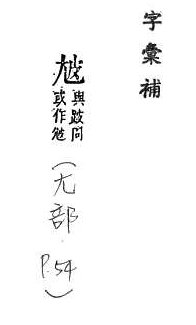 字彙補
與跛同
或作
(尢部 P.54)